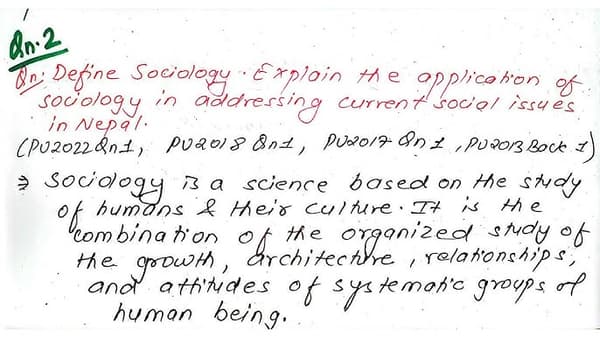 Qn.2
Qn: Define Sociology. Explain the application of
sociology in addressing current social issues
in Nepal.
(PU2022Qn1, PU2018 Qn1, PU2017 Qn 1, PU2013 Back 1)
⇒ Sociology is a science based on the study
of humans & their culture. It is the
combination of the organized study of
the growth, architecture, relationships,
and attitudes of systematic groups of
human being.